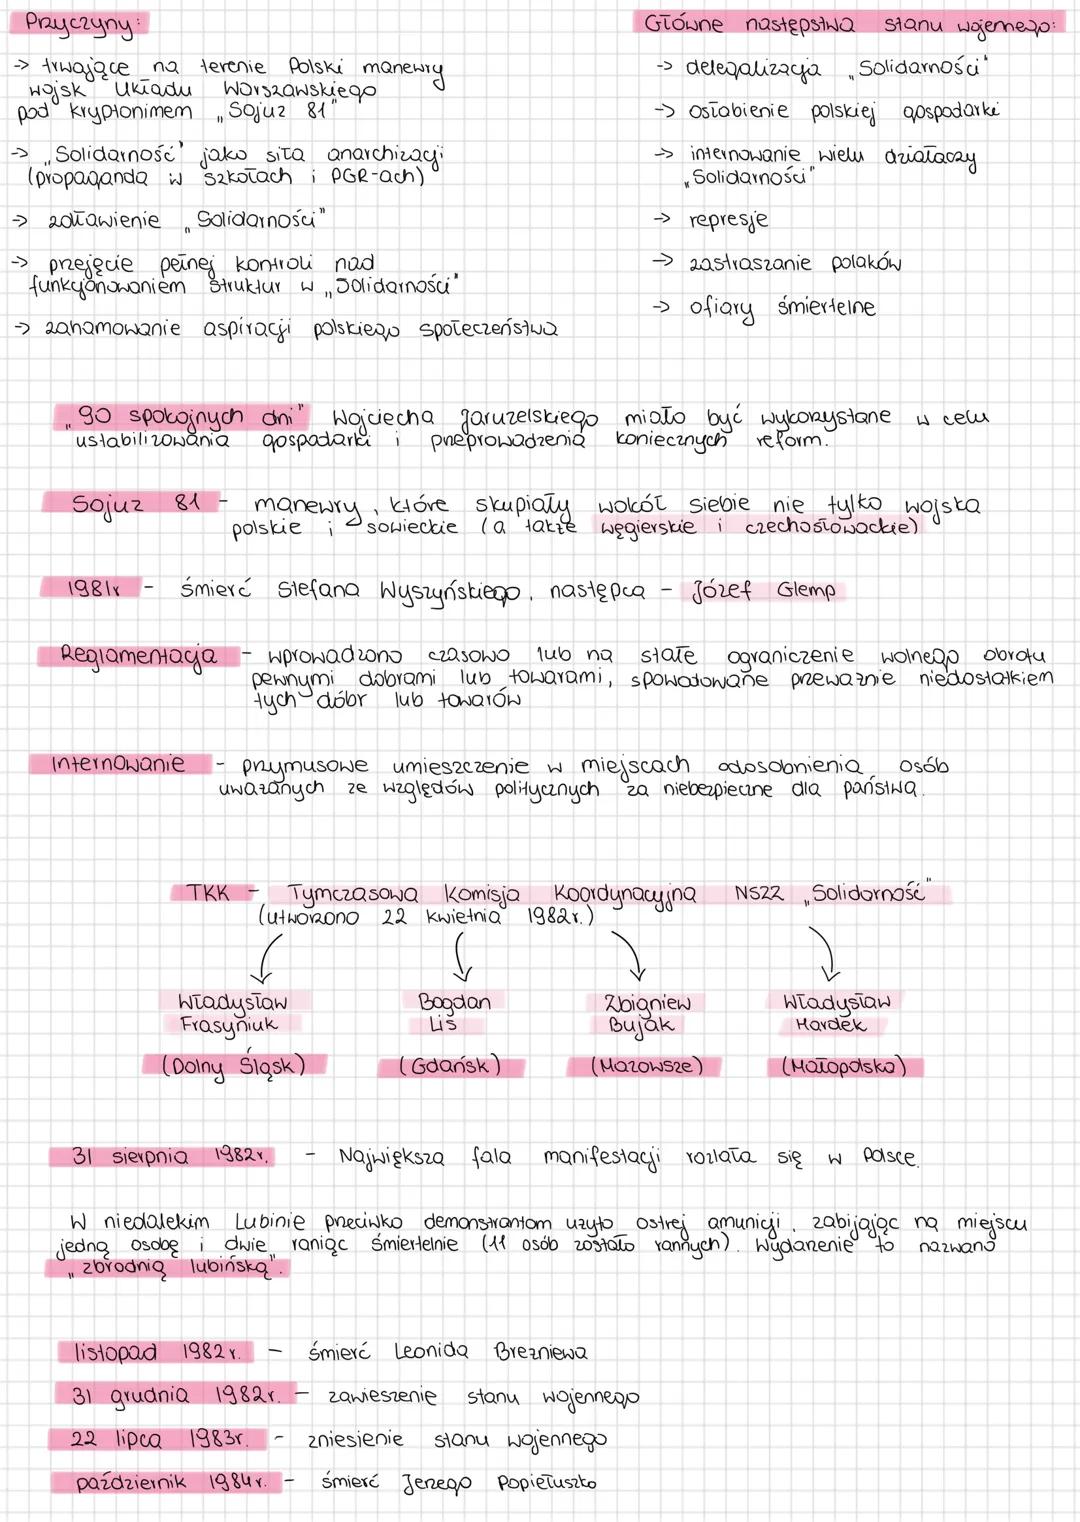 Przyczyny:
-> trwające na terenie Polski manewry
wojsk Układu Warszawskiego
pod kryptonimem „Sojuz 81"
-> „Solidarność" jako siła anarchizacji
(propaganda w szkołach i PGR-ach)
-> zdławienie „Solidarności"
-> przejęcie pełnej kontroli nad
funkcjonowaniem struktur w „Solidarności"
-> zahamowanie aspiracji polskiego społeczeństwa
Główne następstwa stanu wojennego:
-> delegalizacja „Solidarności"
-> osłabienie polskiej gospodarki
-> internowanie wielu działaczy
„Solidarności"
-> represje
-> zastraszanie polaków
-> ofiary śmiertelne
„90 spokojnych dni" Wojciecha Jaruzelskiego miało być wykorzystane w celu
ustabilizowania gospodarki i przeprowadzenia koniecznych reform.
Sojuz 81 - manewry, które skupiały wokół siebie nie tylko wojska
polskie i sowieckie (a także węgierskie i czechosłowackie)
1981r - śmierć Stefana Wyszyńskiego, następca - Józef Glemp
Reglamentacja - wprowadzono czasowo lub na stałe ograniczenie wolnego obrotu
pewnymi dobrami lub towarami, spowodowane przeważnie niedostatkiem
tych dóbr lub towarów
Internowanie - przymusowe umieszczenie w miejscach odosobnienia osób
uważanych ze względów politycznych za niebezpieczne dla państwa.
TKK - Tymczasowa Komisja Koordynacyjna NSZZ „Solidarność"
(utworzono 22 kwietnia 1982r.)
Władysław Frasyniuk
(Dolny Śląsk)
Bogdan Lis
(Gdańsk)
Zbigniew Bujak
(Mazowsze)
Władysław Hardek
(Małopolska)
31 sierpnia 1982r. - Największa fala manifestacji rozlała się w Polsce.
W niedalekim Lubinie przeciwko demonstrantom użyto ostrej amunicji, zabijając na miejscu
jedną osobę i dwie raniąc śmiertelnie (11 osób zostało rannych). Wydarzenie to nazwano
„zbrodnią lubińską".
listopad 1982r. - śmierć Leonida Breżniewa
31 grudnia 1982r. - zawieszenie stanu wojennego
22 lipca 1983r. - zniesienie stanu wojennego
październik 1984r. - śmierć Jerzego Popiełuszko